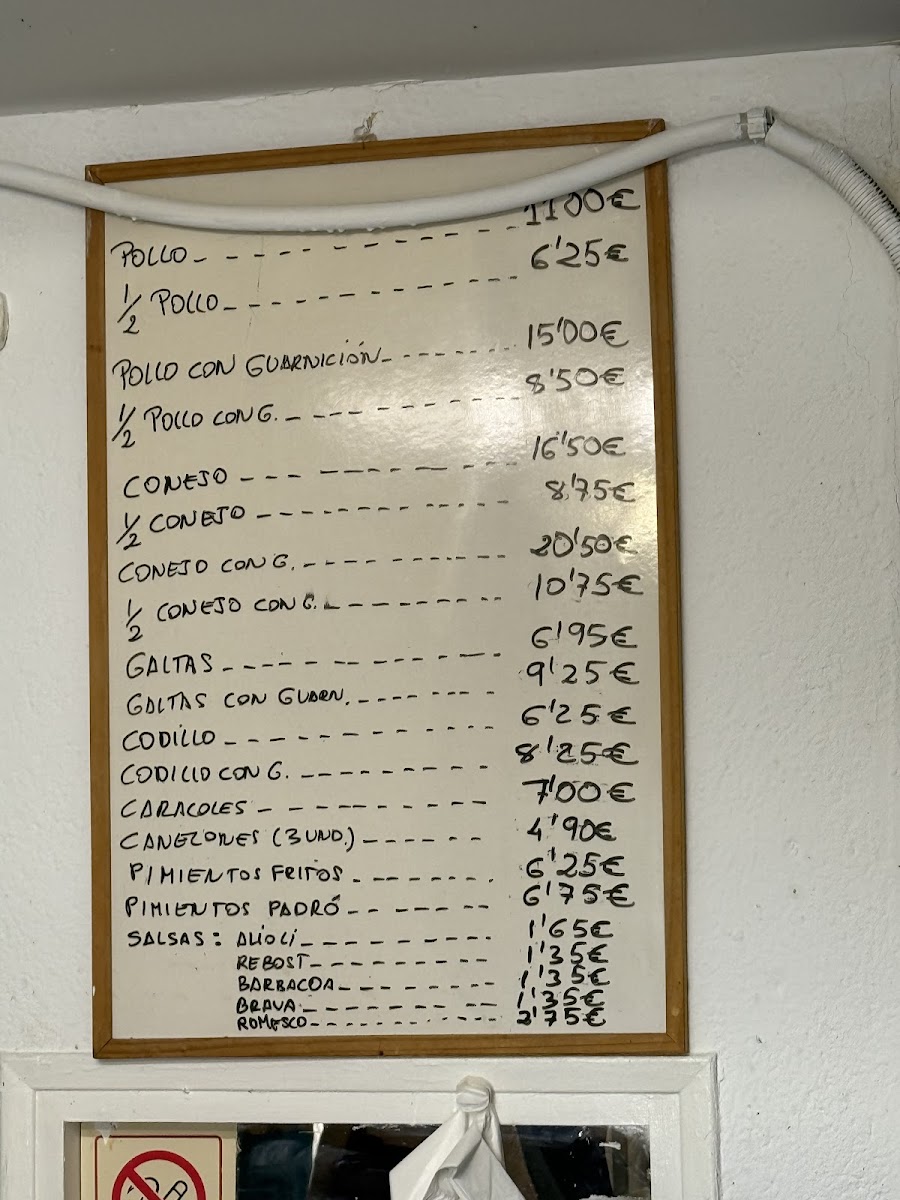 POLLO - - - - - - - - - - 11'00€
1/2 POLLO - - - - - - - - - - 6'25€
POLLO CON GUARNICIÓN - - - - - - - 15'00€
1/2 POLLO CON G. - - - - - - - - - 8'50€
CONEJO - - - - - - - - - - 16'50€
1/2 CONEJO - - - - - - - - - - 8'75€
CONEJO CON G. - - - - - - - - - 20'50€
1/2 CONEJO CON G. - - - - - - - - 10'75€
GALTAS - - - - - - - - - - 6'95€
GALTAS CON GUARN. - - - - - - - 9'25€
CODILLO - - - - - - - - - - 6'25€
CODILLO CON G. - - - - - - - - 8'25€
CARACOLES - - - - - - - - - 7'00€
CANELONES (3 UND.) - - - - - - 4'90€
PIMIENTOS FRITOS - - - - - - - 6'25€
PIMIENTOS PADRÓ - - - - - - - 6'75€
SALSAS: ALIOLI - - - - - - - - 1'65€
REBOST - - - - - - - - 1'35€
BARBACOA - - - - - - - - 1'35€
BRAVA - - - - - - - - - 1'35€
ROMESCO - - - - - - - - - 2'75€